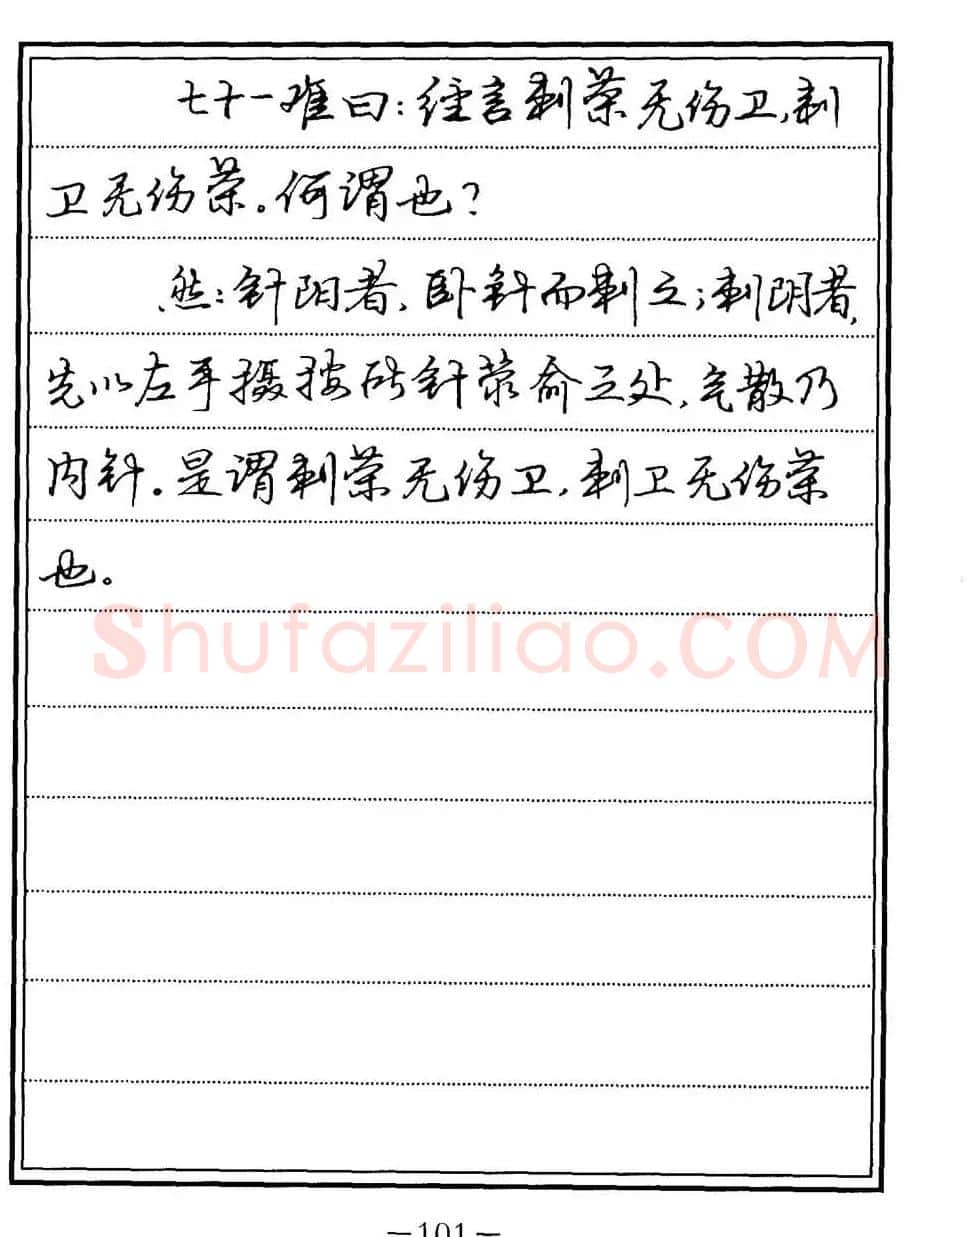 七十一难曰:经言刺荣无伤卫,刺
卫无伤荣。何谓也?
然:针阳者,卧针而刺之;刺阴者,
先以左手摄按所针荥俞之处,气散乃
内针。是谓刺荣无伤卫,刺卫无伤荣
也。
Shufaziliao.COM
—101—